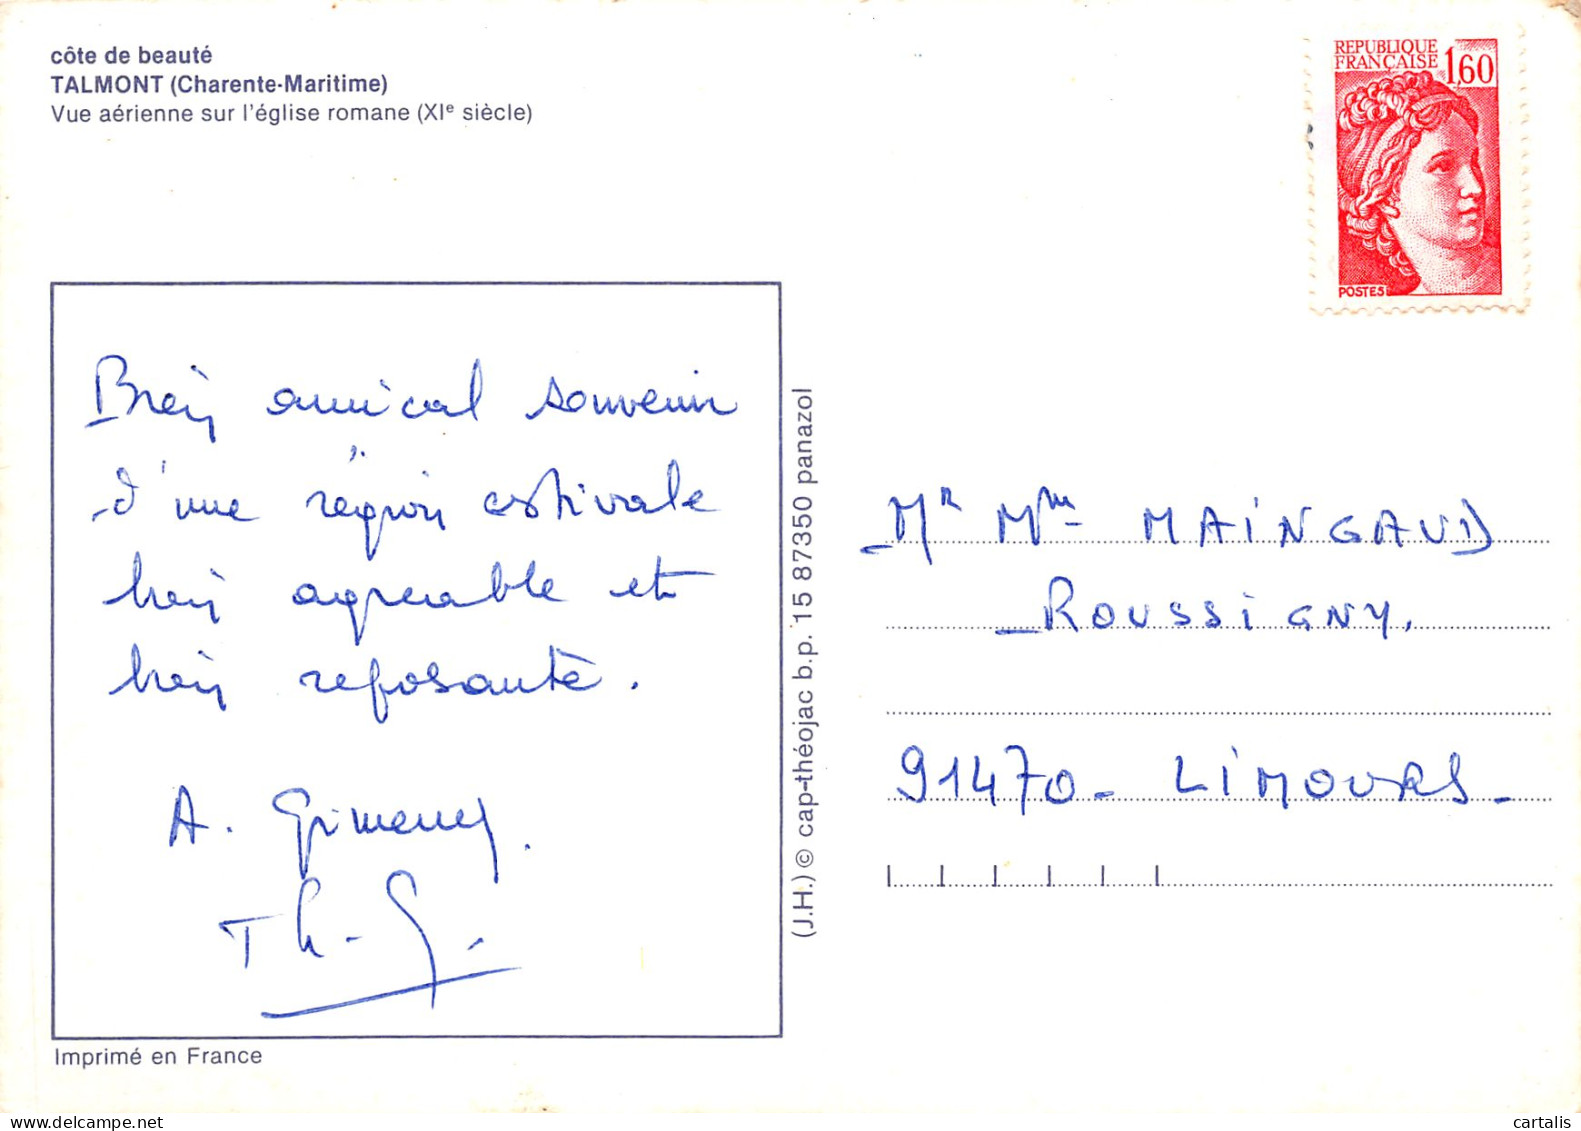 côte de beauté
TALMONT (Charente-Maritime)
Vue aérienne sur l'église romane (XIe siècle)
REPUBLIQUE
FRANÇAISE
1,60
POSTES
Bien amical souvenir
d'une région estivale
bien agréable et
bien reposante.
A. Gimenez.
Th. G.
(J.H.) © cap-théojac b.p. 15 87350 panazol
Mr Mme MAINGAUD
ROUSSIGNY.
91470 - LIMOURS -
Imprimé en France
delcampe.net
cartalis